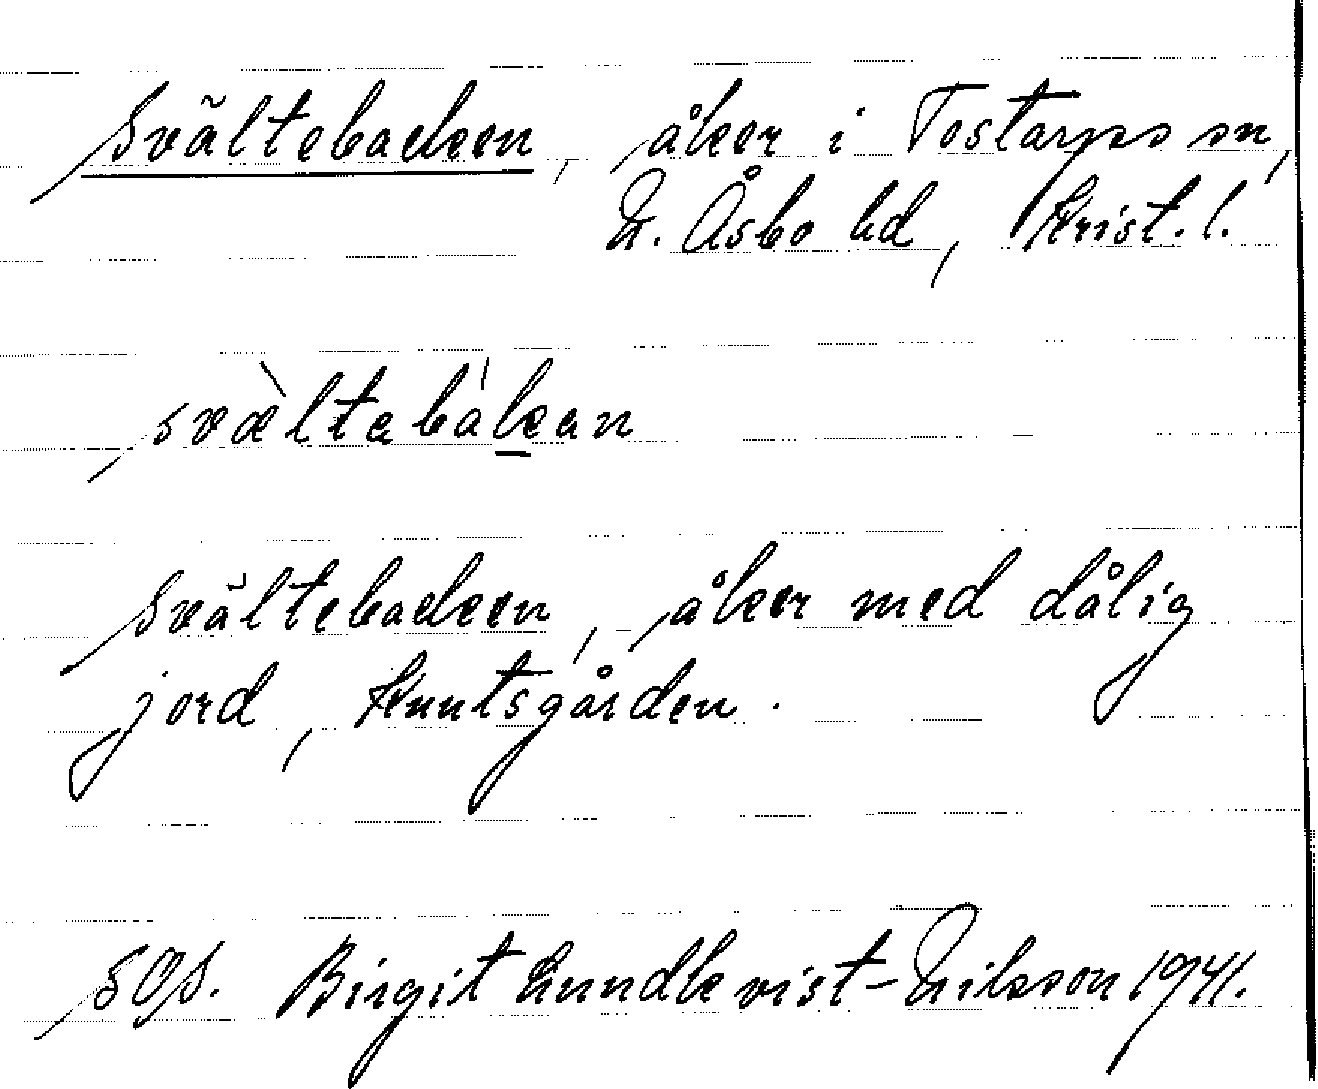 Svältebacken, åker i Tostarps sn,
N. Åsbo hd, Krist. l.
svæ̀ltabákan
Svältebacken, åker med dålig
jord, Knutsgården.
SOS. Birgit Lundkvist-Nilsson 1941.